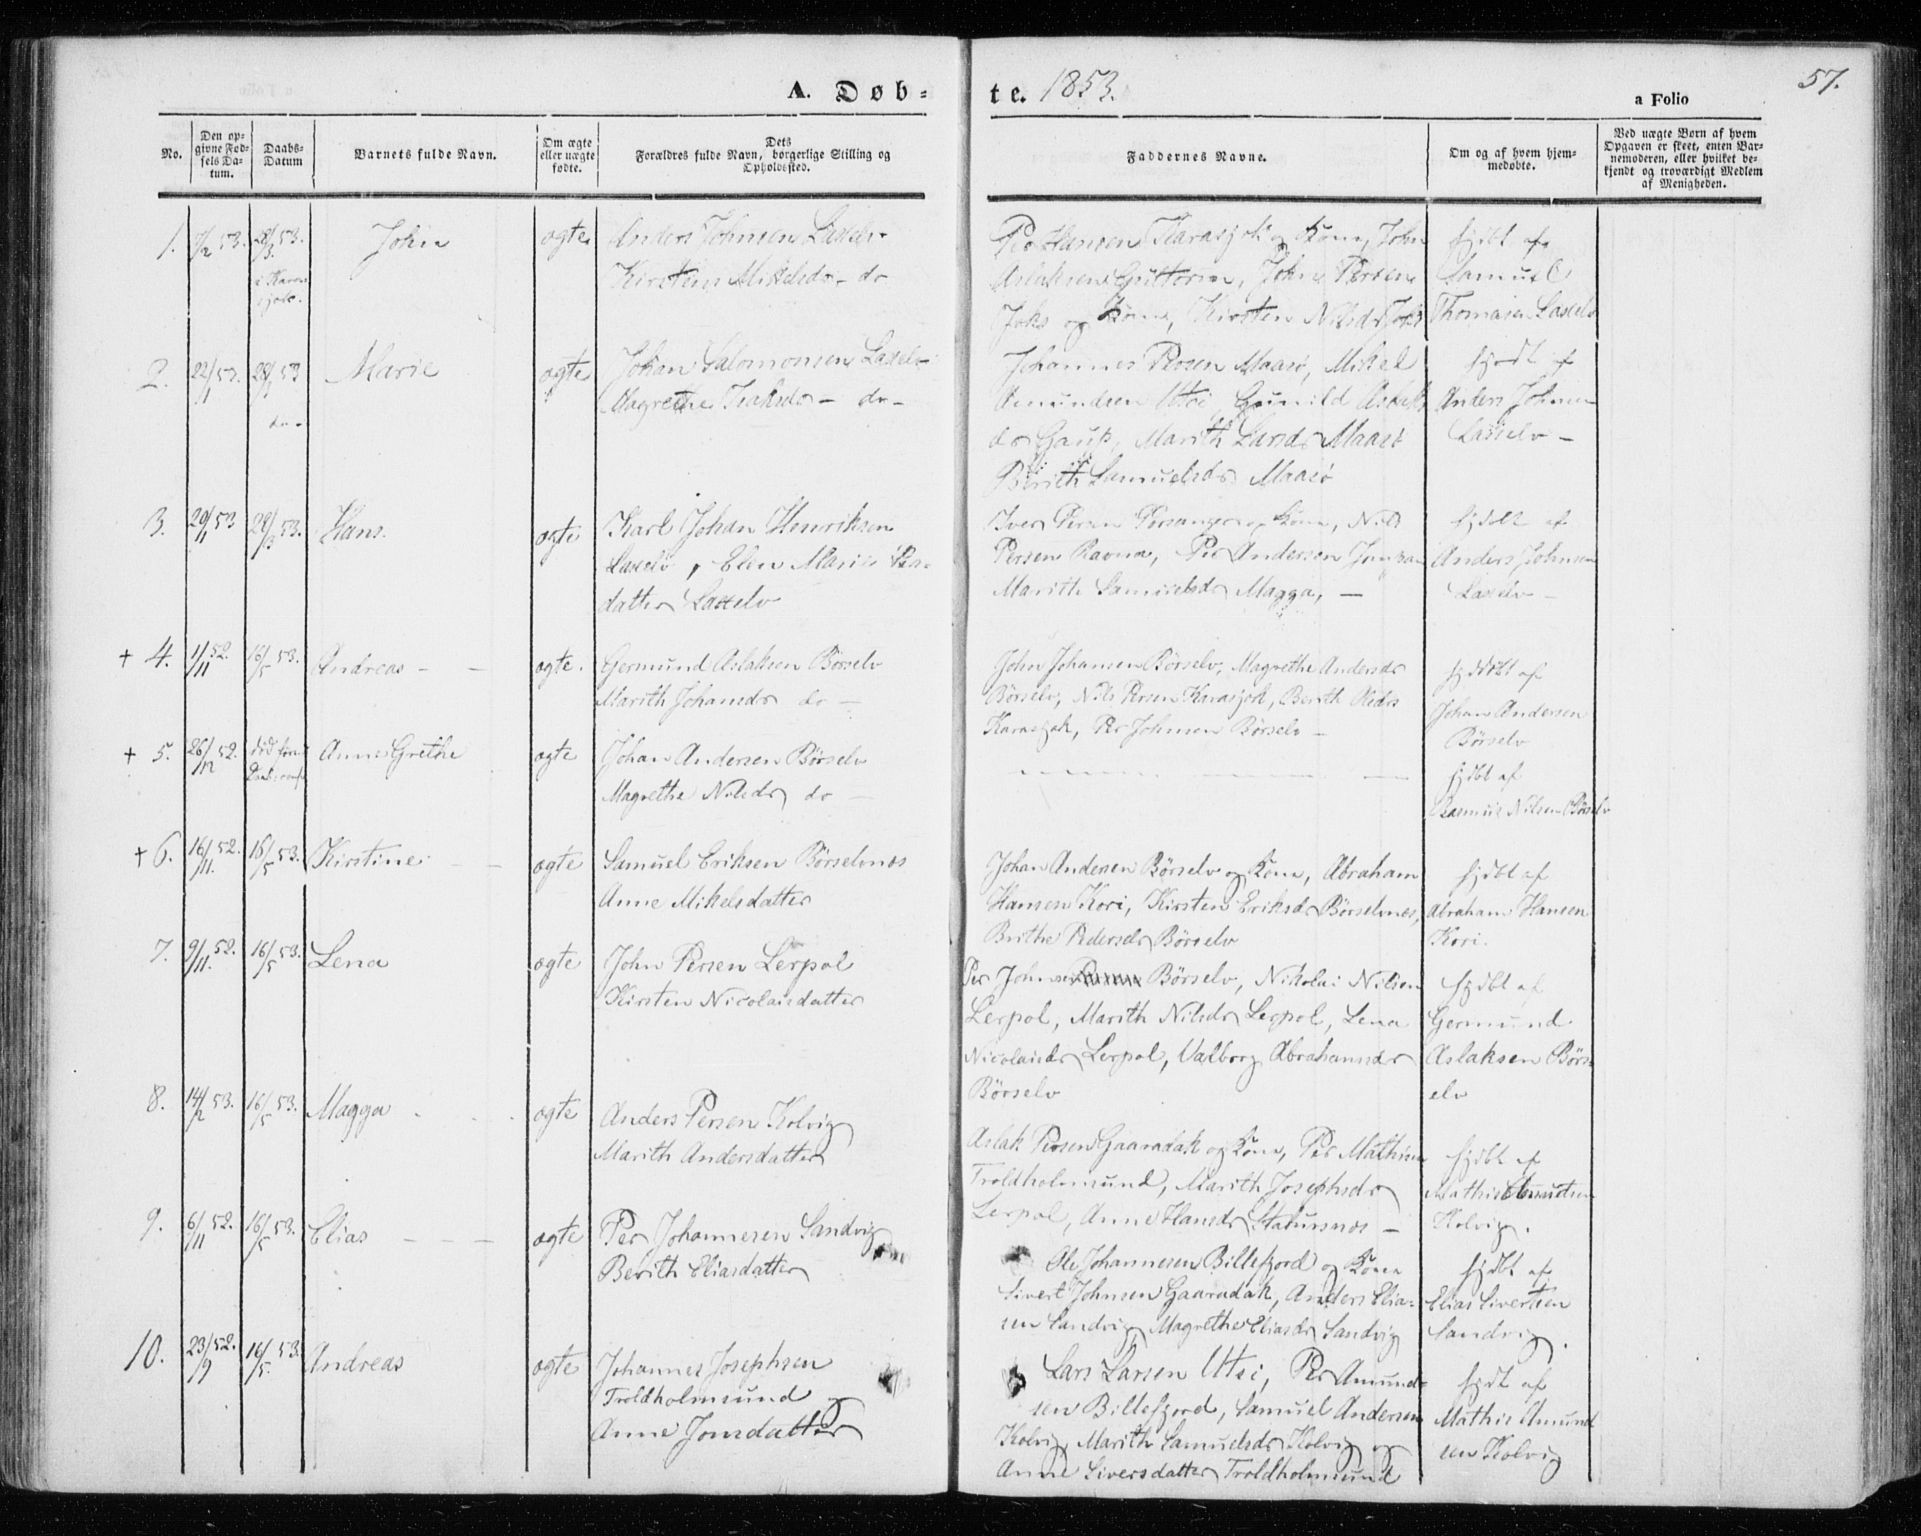 A. Døb-
te. 1853.
57.
a Folio
No.
Den op-
givne Fød-
sels Da-
tum.
Daabs-
Datum
Barnets fulde Navn.
Om ægte
eller uægte
fødte.
Dets
Forældres fulde Navn, borgerlige Stilling og
Opholdssted.
Faddernes Navne.
Om og af hvem hjem-
medøbte.
Ved uægte Børn af hvem
Opgaven er skeet, enten Bar-
nemoderen, eller hvilket be-
kjendt og troværdigt Medlem
af Menigheden.
1. 7/2 53. 28/3 53. John ægte Anders Johnsen Laxelv
Kirsten Mikelsdr - do
Per Hansen Karasjok og Kone, John
Aslaksen Guttorm, John Persen
Joks og Kone, Kirsten Nilsdr Joks
hjdbt af
Samuel
Thomasen Laxelv
2. 22/1 53. 28/3 53 do - Marie ægte Johan Salomonsen Laxelv
Magrethe Isaksdr - do -
Johannes Persen Maasø, Mikel
Amundsen Utsi, Gunild Aslaks
dr Gaup, Marith Larsdr Maasø
Berith Samuelsdr Maasø
hjdt af
Anders Johnsen
Laxelv -
3. 29/1 53 28/3 53. Hans. ægte Karl Johan Henriksen
Laxelv, Elen Marie Pers-
datter Laxelv
Iver Persen Porsanger og Kone, Nils
Persen Ravna, Per Andersen
Marith Samuelsdr Magga, -
hjdbt af
Anders Johnsen
Laxelv -
+ 4. 1/11 52. 16/5 53. Andreas - - ægte. Germund Aslaksen Børselv
Marith Johansdr do -
John Johansen Børselv, Magrethe Andersdr
Børselv, Nils Persen Karasjok, Berith Pedrs
Karasjok, Per Johnsen Børselv -
hjddbt af
Johan Andersen
Børselv
+ 5. 26/12 52. død før Anne Grethe ægte Johan Andersen Børselv
Magrethe Nilsdr do -
hjdbt af
Rasmus Nilsen Børselv
+ 6. 16/11. 52. 16/5 53. Kirstine - - ægte Samuel Eriksen Børselvnes
Anne Mikelsdatter
Johan Andersen Børselv og Kone, Abraham
Hansen Kori, Kirsten Eriksdr Børselvnes,
Brithe Pedersdr Børselv
hjdbt af
Abraham Hansen
Kori.
7. 9/11. 52. 16/5 53. Lena ægte John Persen Lerpol
Kirsten Nicolaisdatter
Per Johnsen Børselv, Nikolai Nilsen
Lerpol, Marith Nilsdr Lerpol, Lena
Nicolaisdr Lerpol, Valborg Abrahamsdr
Børselv
hjdbt af
Germund
Aslaksen Børs-
elv
8. 14/2 53. 16/5 53. Magga ægte Anders Persen Kolvig
Marith Andersdatter
Aslak Persen Gaaradak og Kone, Per Mathisen
Troldholmsund, Marith Josephsdr
Lerpol, Anne Hansdr Stabursnæs -
hjdbt af
Mathis Amundsen
Kolvig.
9. 6/11 52. 16/5 53. Elias - - - ægte Per Johannesen Sandvig
Berith Eliasdatter
Ole Johannesen Billefjord og Kone
Sivert Johnsen Gaaradak, Anders Elia-
sen Sandvig, Magrethe Eliasdr Sandvig
hjdbt af
Elias Sivertsen
Sandvig.
10. 23/9 52. 16/5. 53. Andreas ægte Johannes Josephsen
Troldholmsund og
Anne Jonsdatter
Lars Larsen Utsi, Per Amund-
sen Billefjord, Samuel Andersen
Kolvig, Marith Samuelsdr Kolvig og
Anne Siversdatter Troldholmsund
hjdt af
Mathis Amund
sen Kolvig